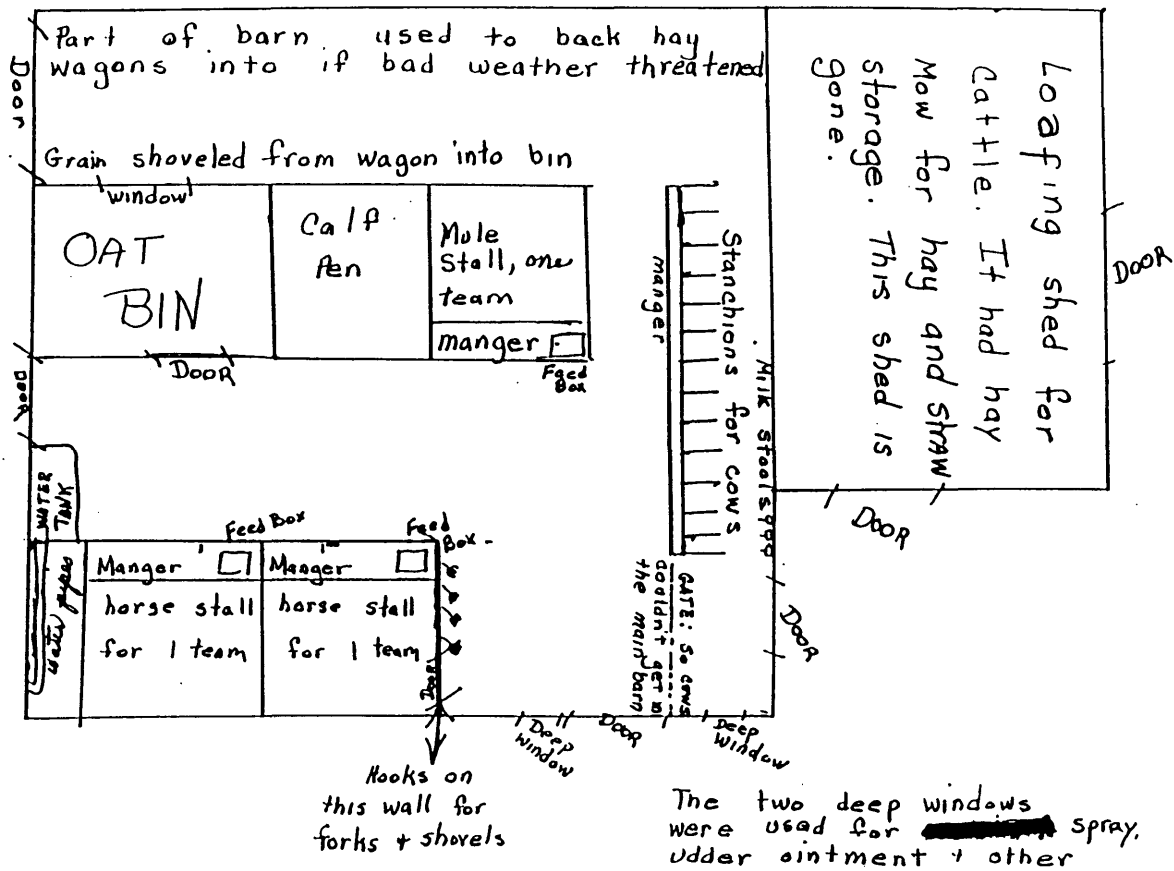 Part of barn used to back hay
wagons into if bad weather threatened
Door
Grain shoveled from wagon into bin
window
OAT
BIN
DOOR
Calf
Pen
Mule
Stall, one
team
manger
Feed
Box
manger
Stanchions for cows
Milk stools
Loafing shed for
Cattle. It had hay
Mow for hay and STRAW
storage. This shed is
gone.
DOOR
DOOR
DOOR
DOOR
WATER
TANK
water pipes
Feed Box
Manger
horse stall
for 1 team
Feed
Box
Manger
horse stall
for 1 team
DOOR
GATE: So cows
couldn't get to
the main barn
Deep
window
DOOR
Deep
window
Hooks on
this wall for
forks + shovels
The two deep windows
were used for spray,
udder ointment + other